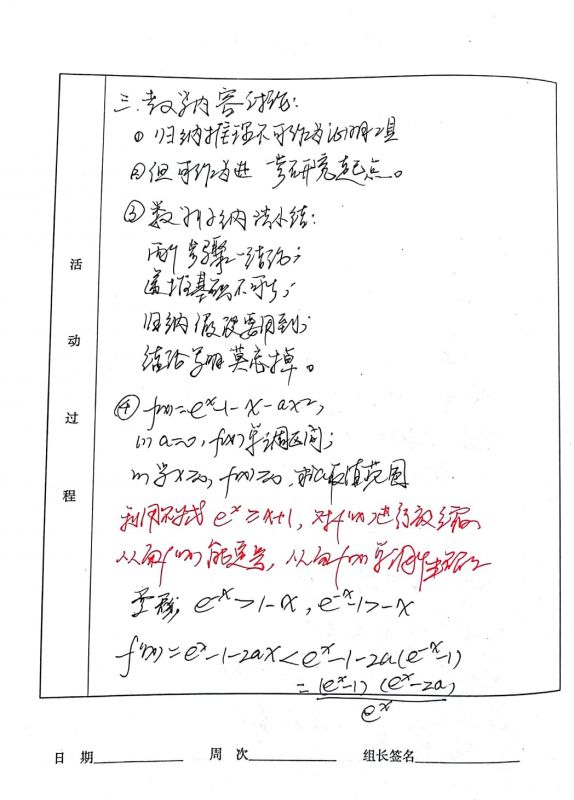 三.教学内容讨论:
① 归纳推理不可作为证明工具
②但可作为进一步研究起点。
③数学归纳法小结:
两个步骤一结论;
递推基础不可少;
归纳假设要用到;
结论写明莫忘掉。
④ f(x)=e^x-1-x-ax²,
(1) a=0, f(x)单调区间;
(2) 当x≥0, f(x)≥0, 求a取值范围
利用不等式 e^x≥x+1, 对f'(x)进行放缩,
从而f'(x)能定号, 从而f(x)单调性
变形, e^-x>1-x, e^-x-1>-x
f'(x)=e^x-1-2ax<e^x-1-2a(e^-x-1)
=(e^x-1)(e^x-2a)/e^x
活动过程
日 期 周 次 组长签名